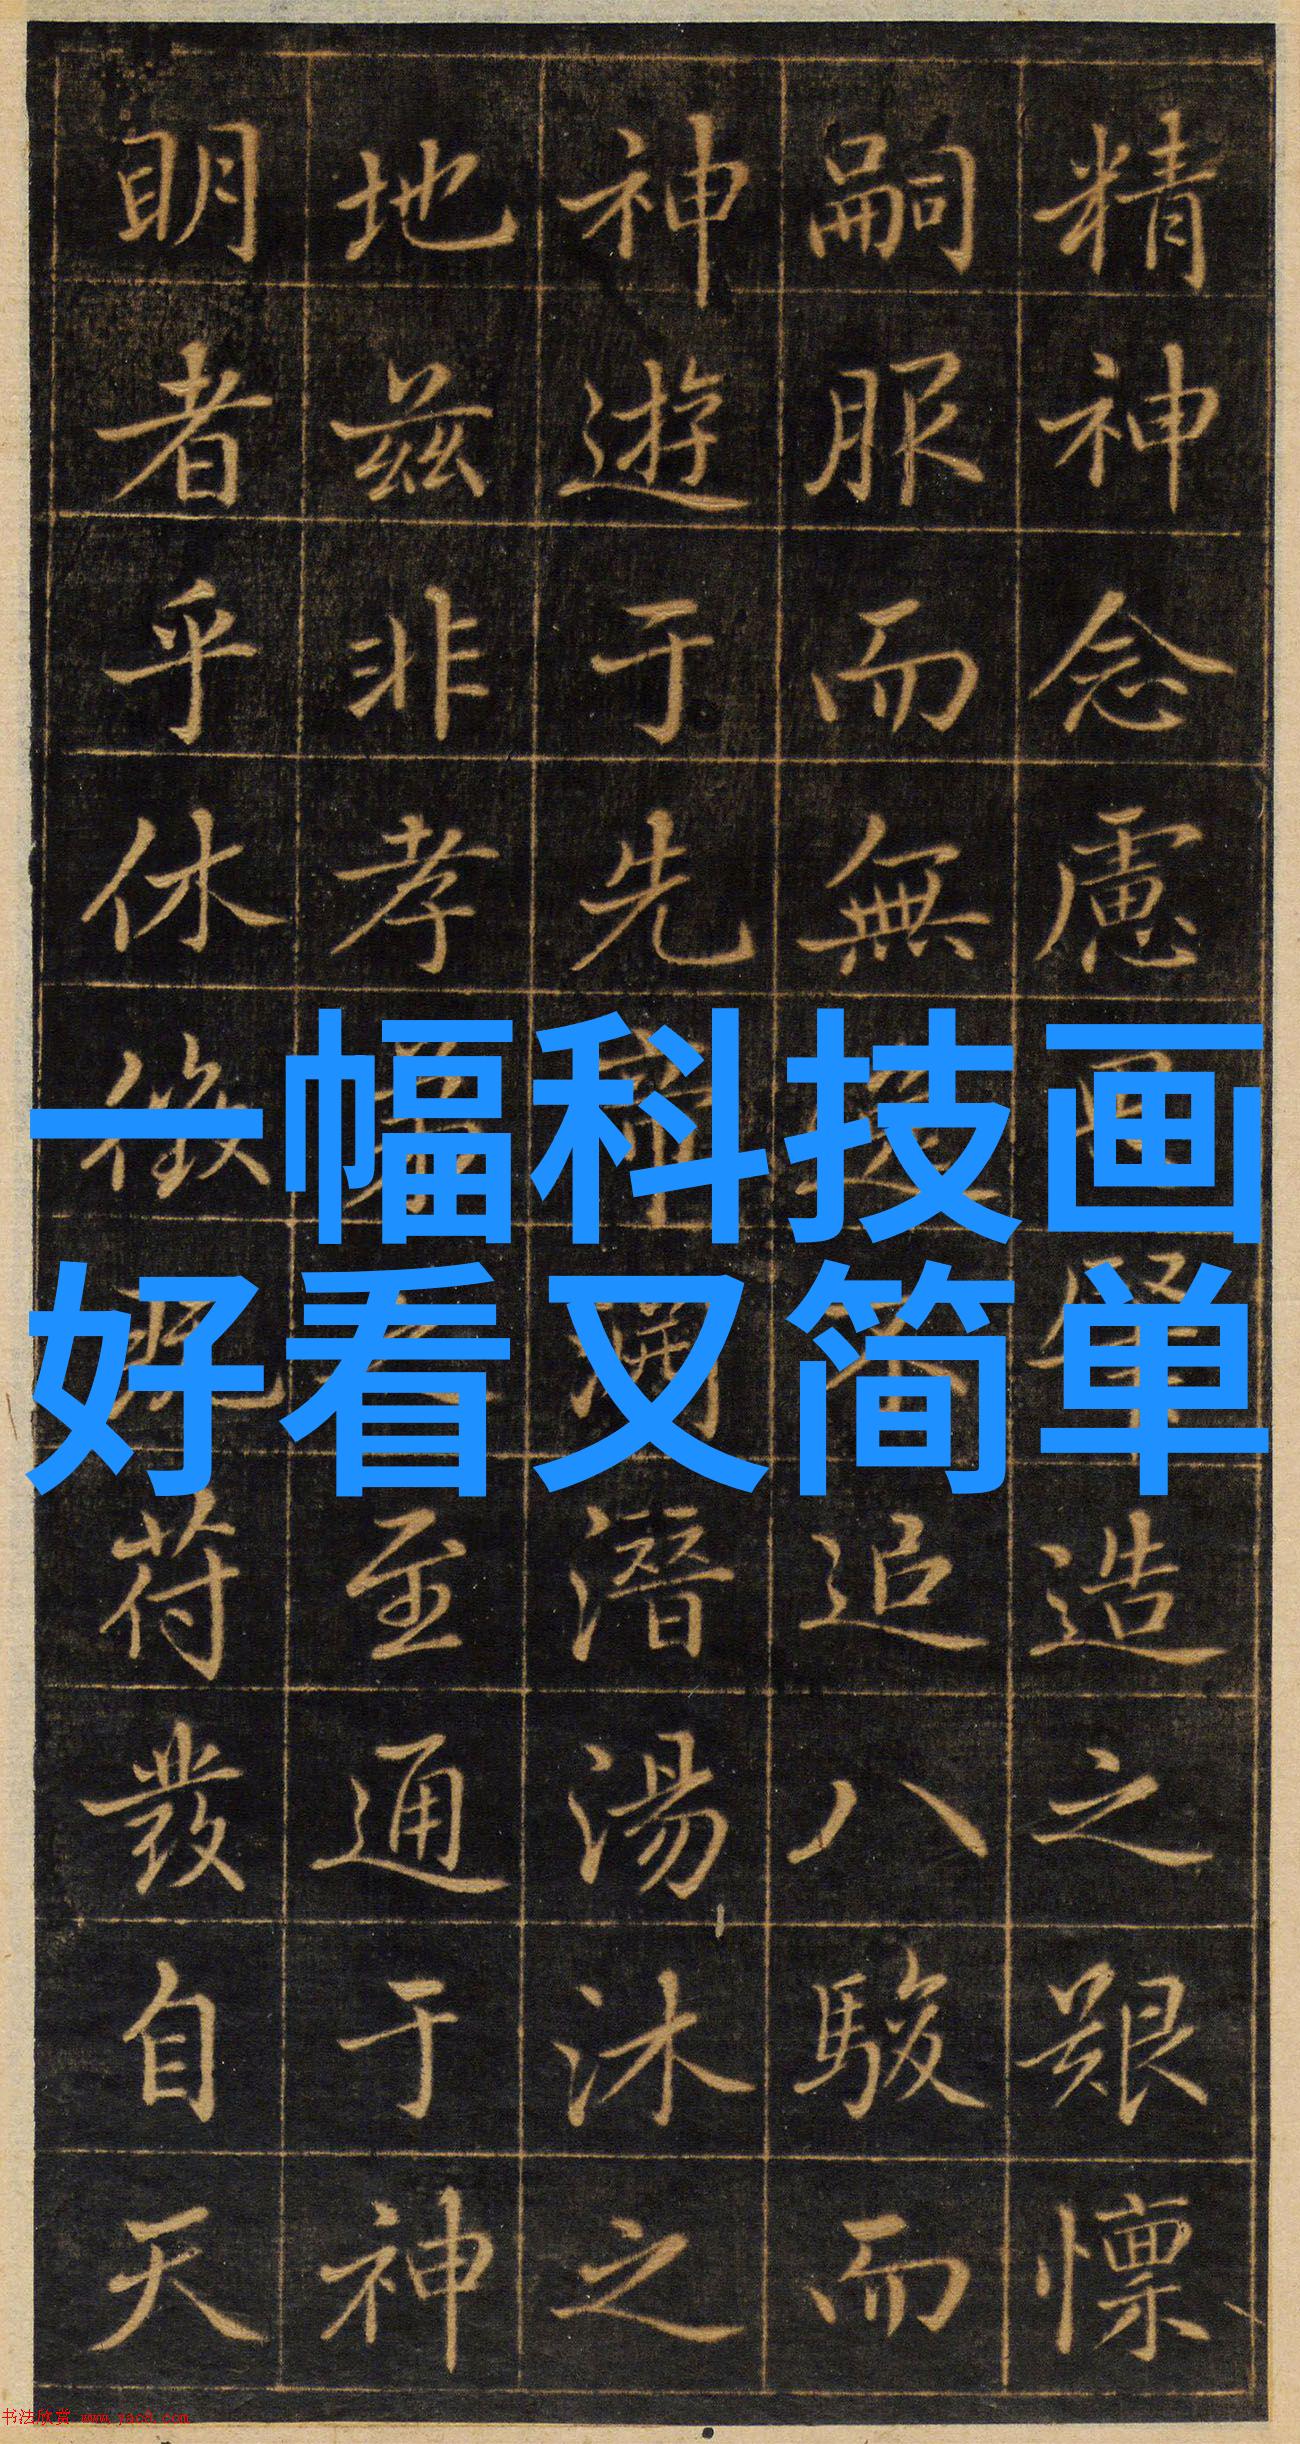 精神念慮造之艱懍
嗣服而無追八駿而
神遊于先潛湯沐之
地茲非孝至通于神
明者乎休徵既苻發自天
一幅科技画
好看又简单
书法欣赏 www.yac8.com